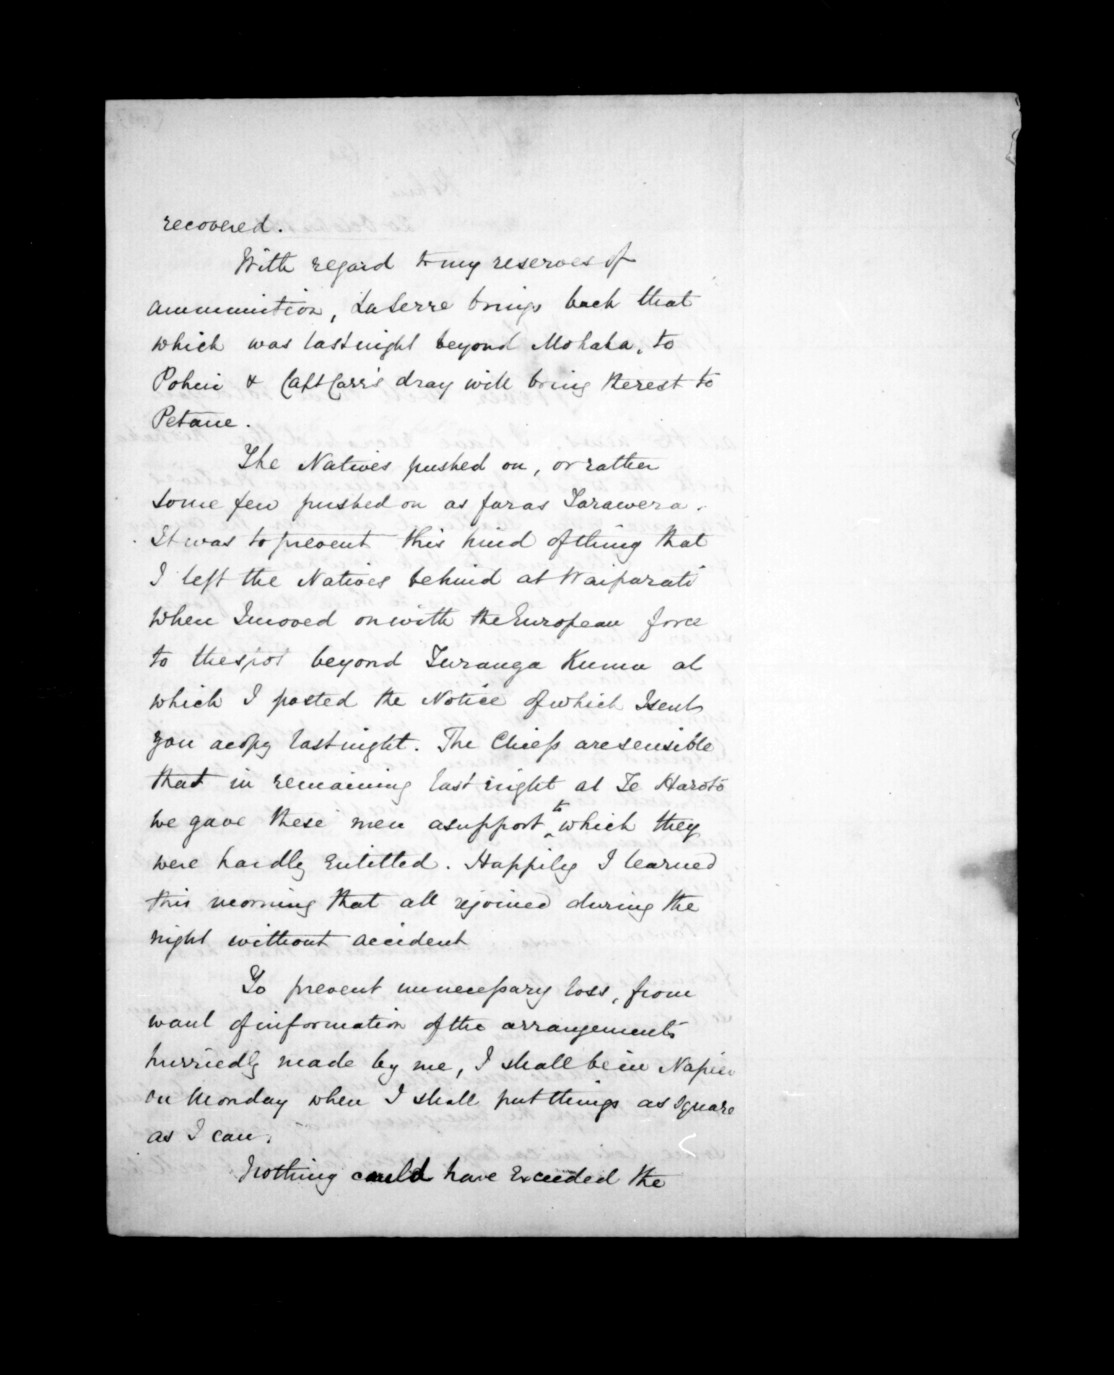 recovered.
With regard to my reserves of
ammunition, LaSerre brings back that
which was last night beyond Mohaka, to
Pohui & Capt Carr's dray will bring the rest to
Petane.
The Natives pushed on, or rather
some few pushed on as far as Tarawera.
It was to prevent this kind of thing that
I left the Natives behind at Waiparati
when I moved on with the European force
to the spot beyond Turanga Kuma at
which I posted the Notice of which I sent
you a copy last night. The Chiefs are sensible
that in remaining last night at Te Haroto
we gave these men a support to which they
were hardly entitled. Happily I learned
this morning that all rejoined during the
night without accident
To prevent unnecessary loss, from
want of information of the arrangements
hurriedly made by me, I shall be in Napier
on Monday when I shall put things as square
as I can.
Nothing could have exceeded the